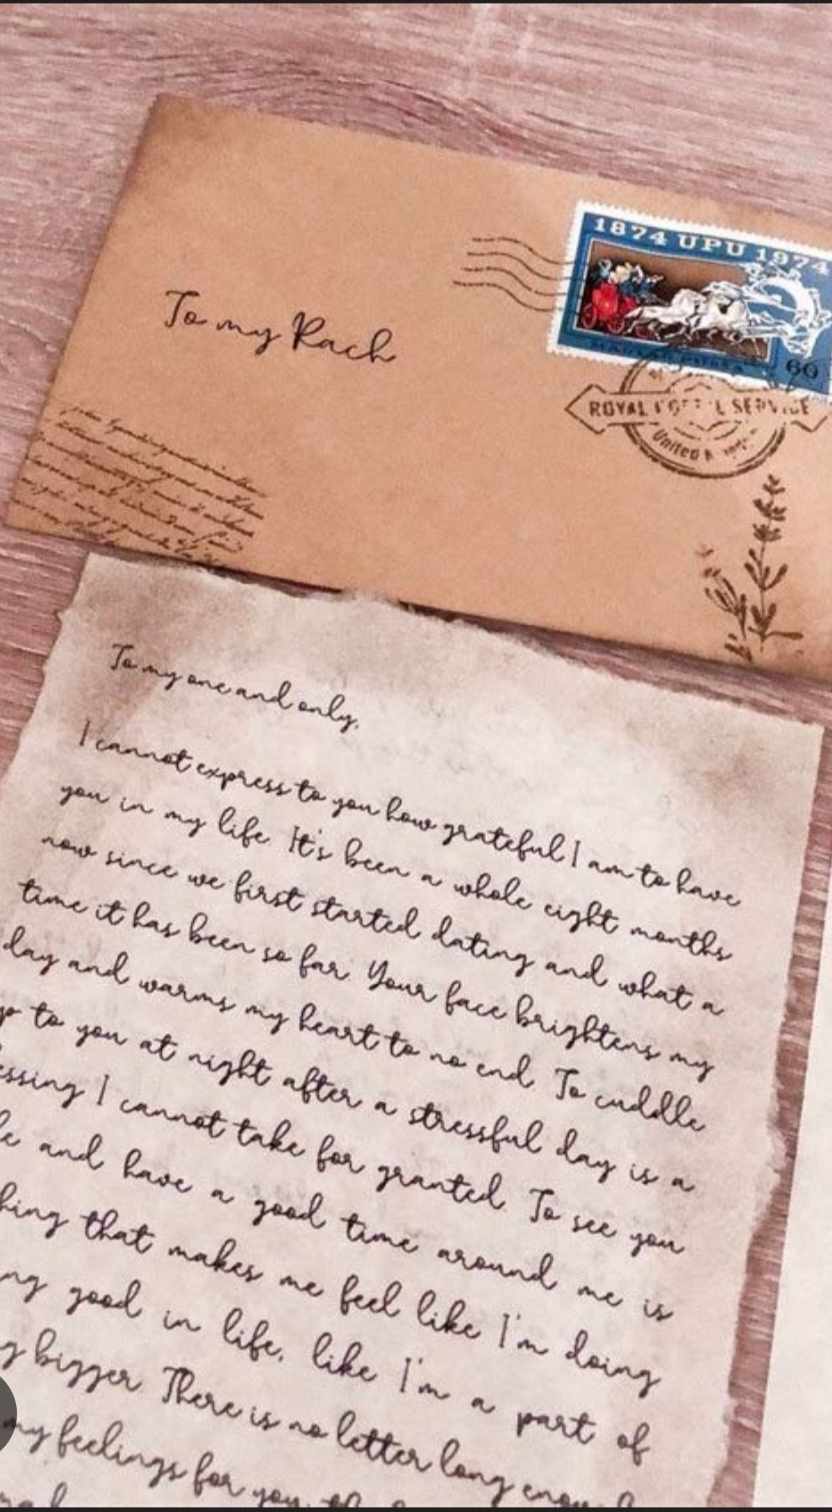 1874 UPU 1974
60
To my Rach
ROYAL SERVICE
United
To my one and only,
I cannot express to you how grateful I am to have
you in my life. It's been a whole eight months
now since we first started dating and what a
time it has been so far. Your face brightens my
day and warms my heart to no end. To cuddle
to you at night after a stressful day is a
I cannot take for granted. To see you
and have a good time around me is
that makes me feel like I'm doing
good in life, like I'm a part of
bigger. There is no letter long
my feelings for you,